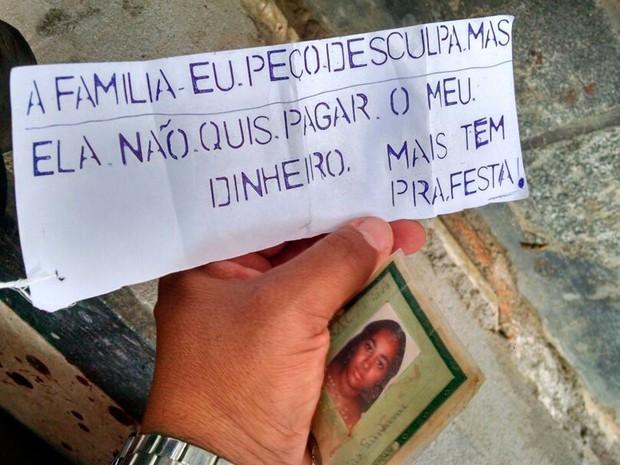 A FAMILIA-EU.PEÇO.DESCULPA.MAS
ELA.NÃO.QUIS.PAGAR.O MEU.
DINHEIRO. MAIS TEM
PRA.FESTA!